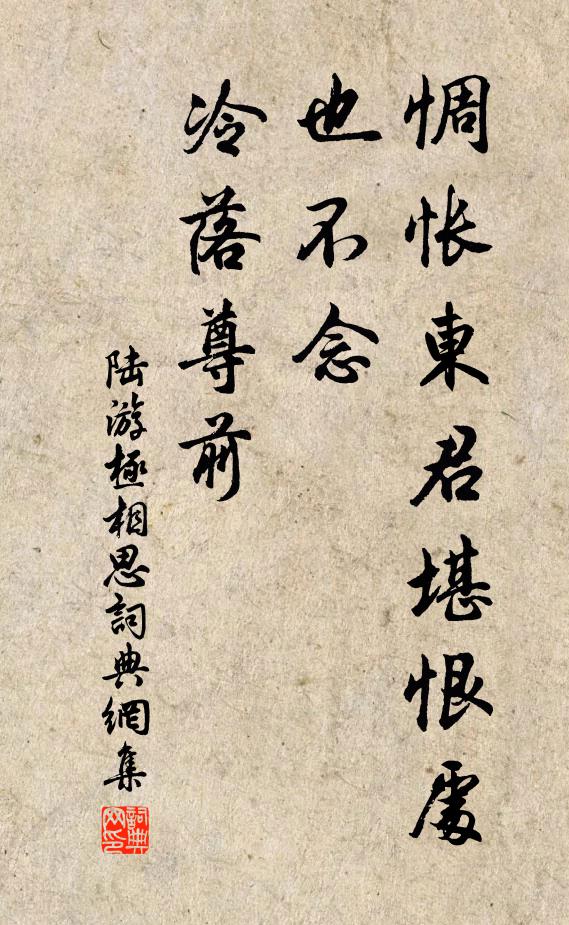 惆怅東君堪恨處
也不念
冷落尊前
陆游極相思詞典網集
詞典
网印